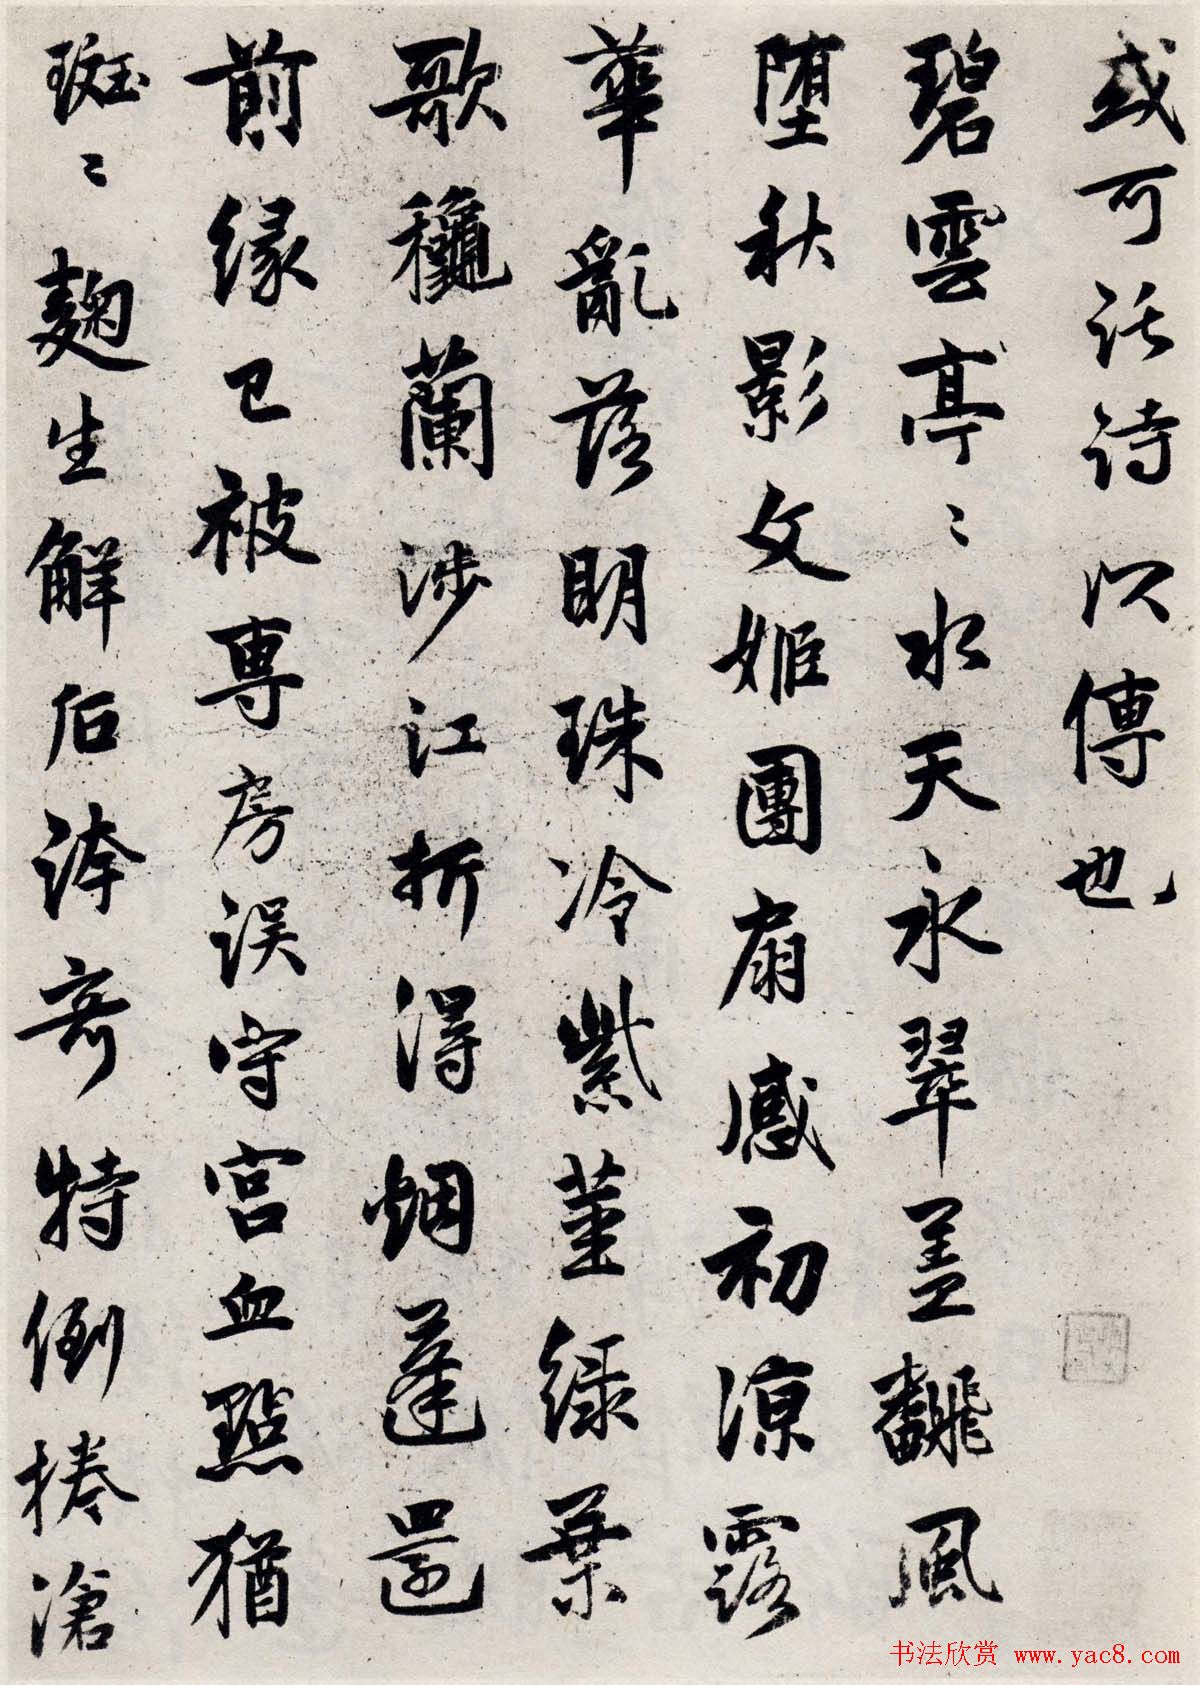 或可託詩以傳也
碧雲亭〻水天永翠蓋飜風
堕秋影文姬團扇感初涼露
華亂落明珠冷紫莖綠葉
歌穐蘭涉江折得烟蓬還
前緣已被専房误守宮血點猶
斑〻麹生解后誇奇特倒捲滄
书法欣赏 www.yac8.com